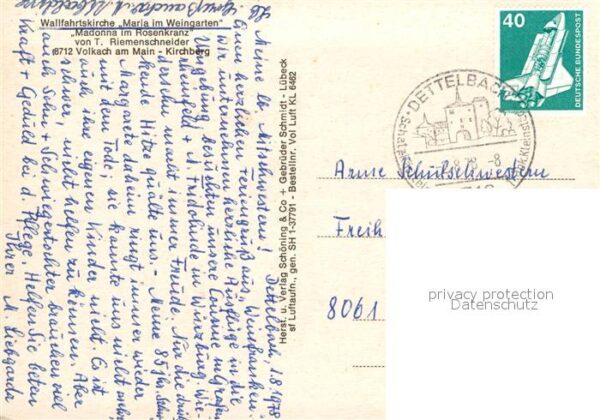 Wallfahrtskirche „Maria im Weingarten"
„Madonna im Rosenkranz"
von T. Riemenschneider
8712 Volkach am Main - Kirchberg
Herst. u. Verlag Schöning & Co + Gebrüder Schmidt - Lübeck
sf Luftaufn., gen. SH 1-37791 - Bestellnr. Vol Luft KL 6462
40
DEUTSCHE BUNDESPOST
DETTELBACH
Dettelbach, 1.8.1978
Meine lb. Mitschwestern!
Einen herzlichen Feriengruß aus „Weinfranken".
Wir unternehmen herrliche Ausflüge in die
Umgebung, besuchten unsere Cousine in
u. Fridolinde in Würzburg. Wie-
dersehen macht immer Freude. Nur die
Hitze quälte uns - Meine 85 jhr.
Margarete daheim ringt immer wieder
mit dem Tod; sie konnte uns nicht
auch ihre eigenen Kinder nicht. Es ist
schwer, nicht helfen zu können. Aber
auch Sohn + Schwiegertochter brauchen viel
Kraft + Geduld bei d. Pflege. Helfen Sie beten
Ihrer M. Liebgarda
Arme Schulschwestern
Freih
8061
privacy protection
Datenschutz